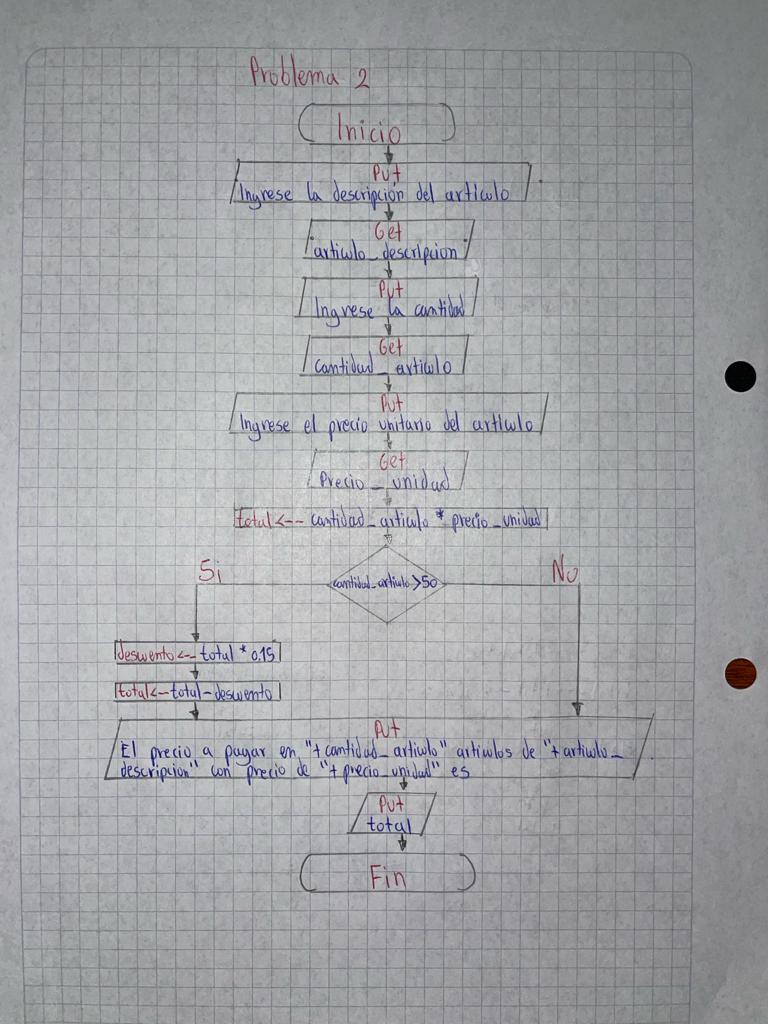 Problema 2
Inicio
Put
Ingrese la descripción del articulo
Get
articulo_descripcion
Put
Ingrese la cantidad
Get
Cantidad_articulo
Put
Ingrese el precio unitario del articulo
Get
Precio_unidad
total<-- cantidad_articulo * precio_unidad
Si
No
cantidad_articulo >50
descuento<-- total * 0.15
total<--total-descuento
Put
El precio a pagar en "+cantidad_articulo" articulos de "+articulo_
descripcion" con precio de "+precio_unidad" es
Put
total
Fin